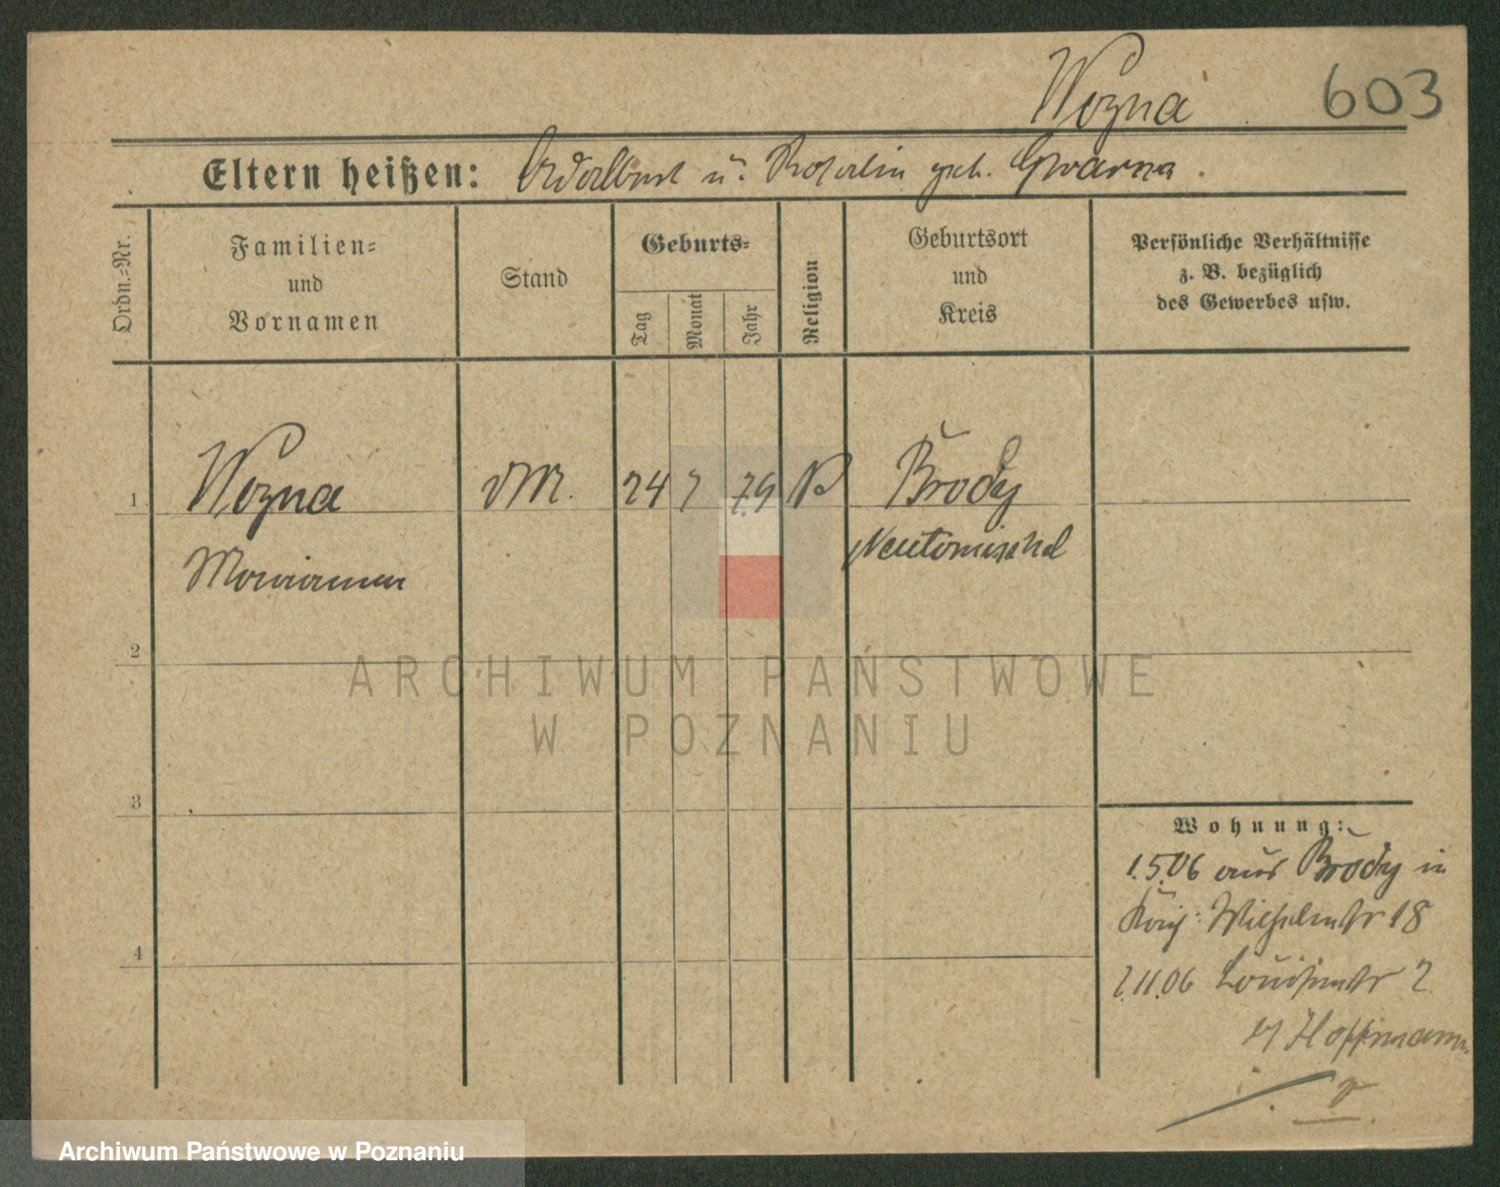 Wozna 603
Eltern heißen: Adalbert u. Rosalin geb. Gwarna.
Ordn.-Nr.
Familien-
und
Vornamen
Stand
Geburts-
Tag
Monat
Jahr
Religion
Geburtsort
und
Kreis
Persönliche Verhältnisse
z. B. bezüglich
des Gewerbes usw.
1 Wozna DM. 24 7 79 Brody
Marianna Neutomischel
2
3
4
Wohnung:
1.5.06 aus Brody in
Wilhelmstr 18
2.11.06 Louisenstr 2
Hoffmann
ARCHIWUM PAŃSTWOWE
W POZNANIU
Archiwum Państwowe w Poznaniu